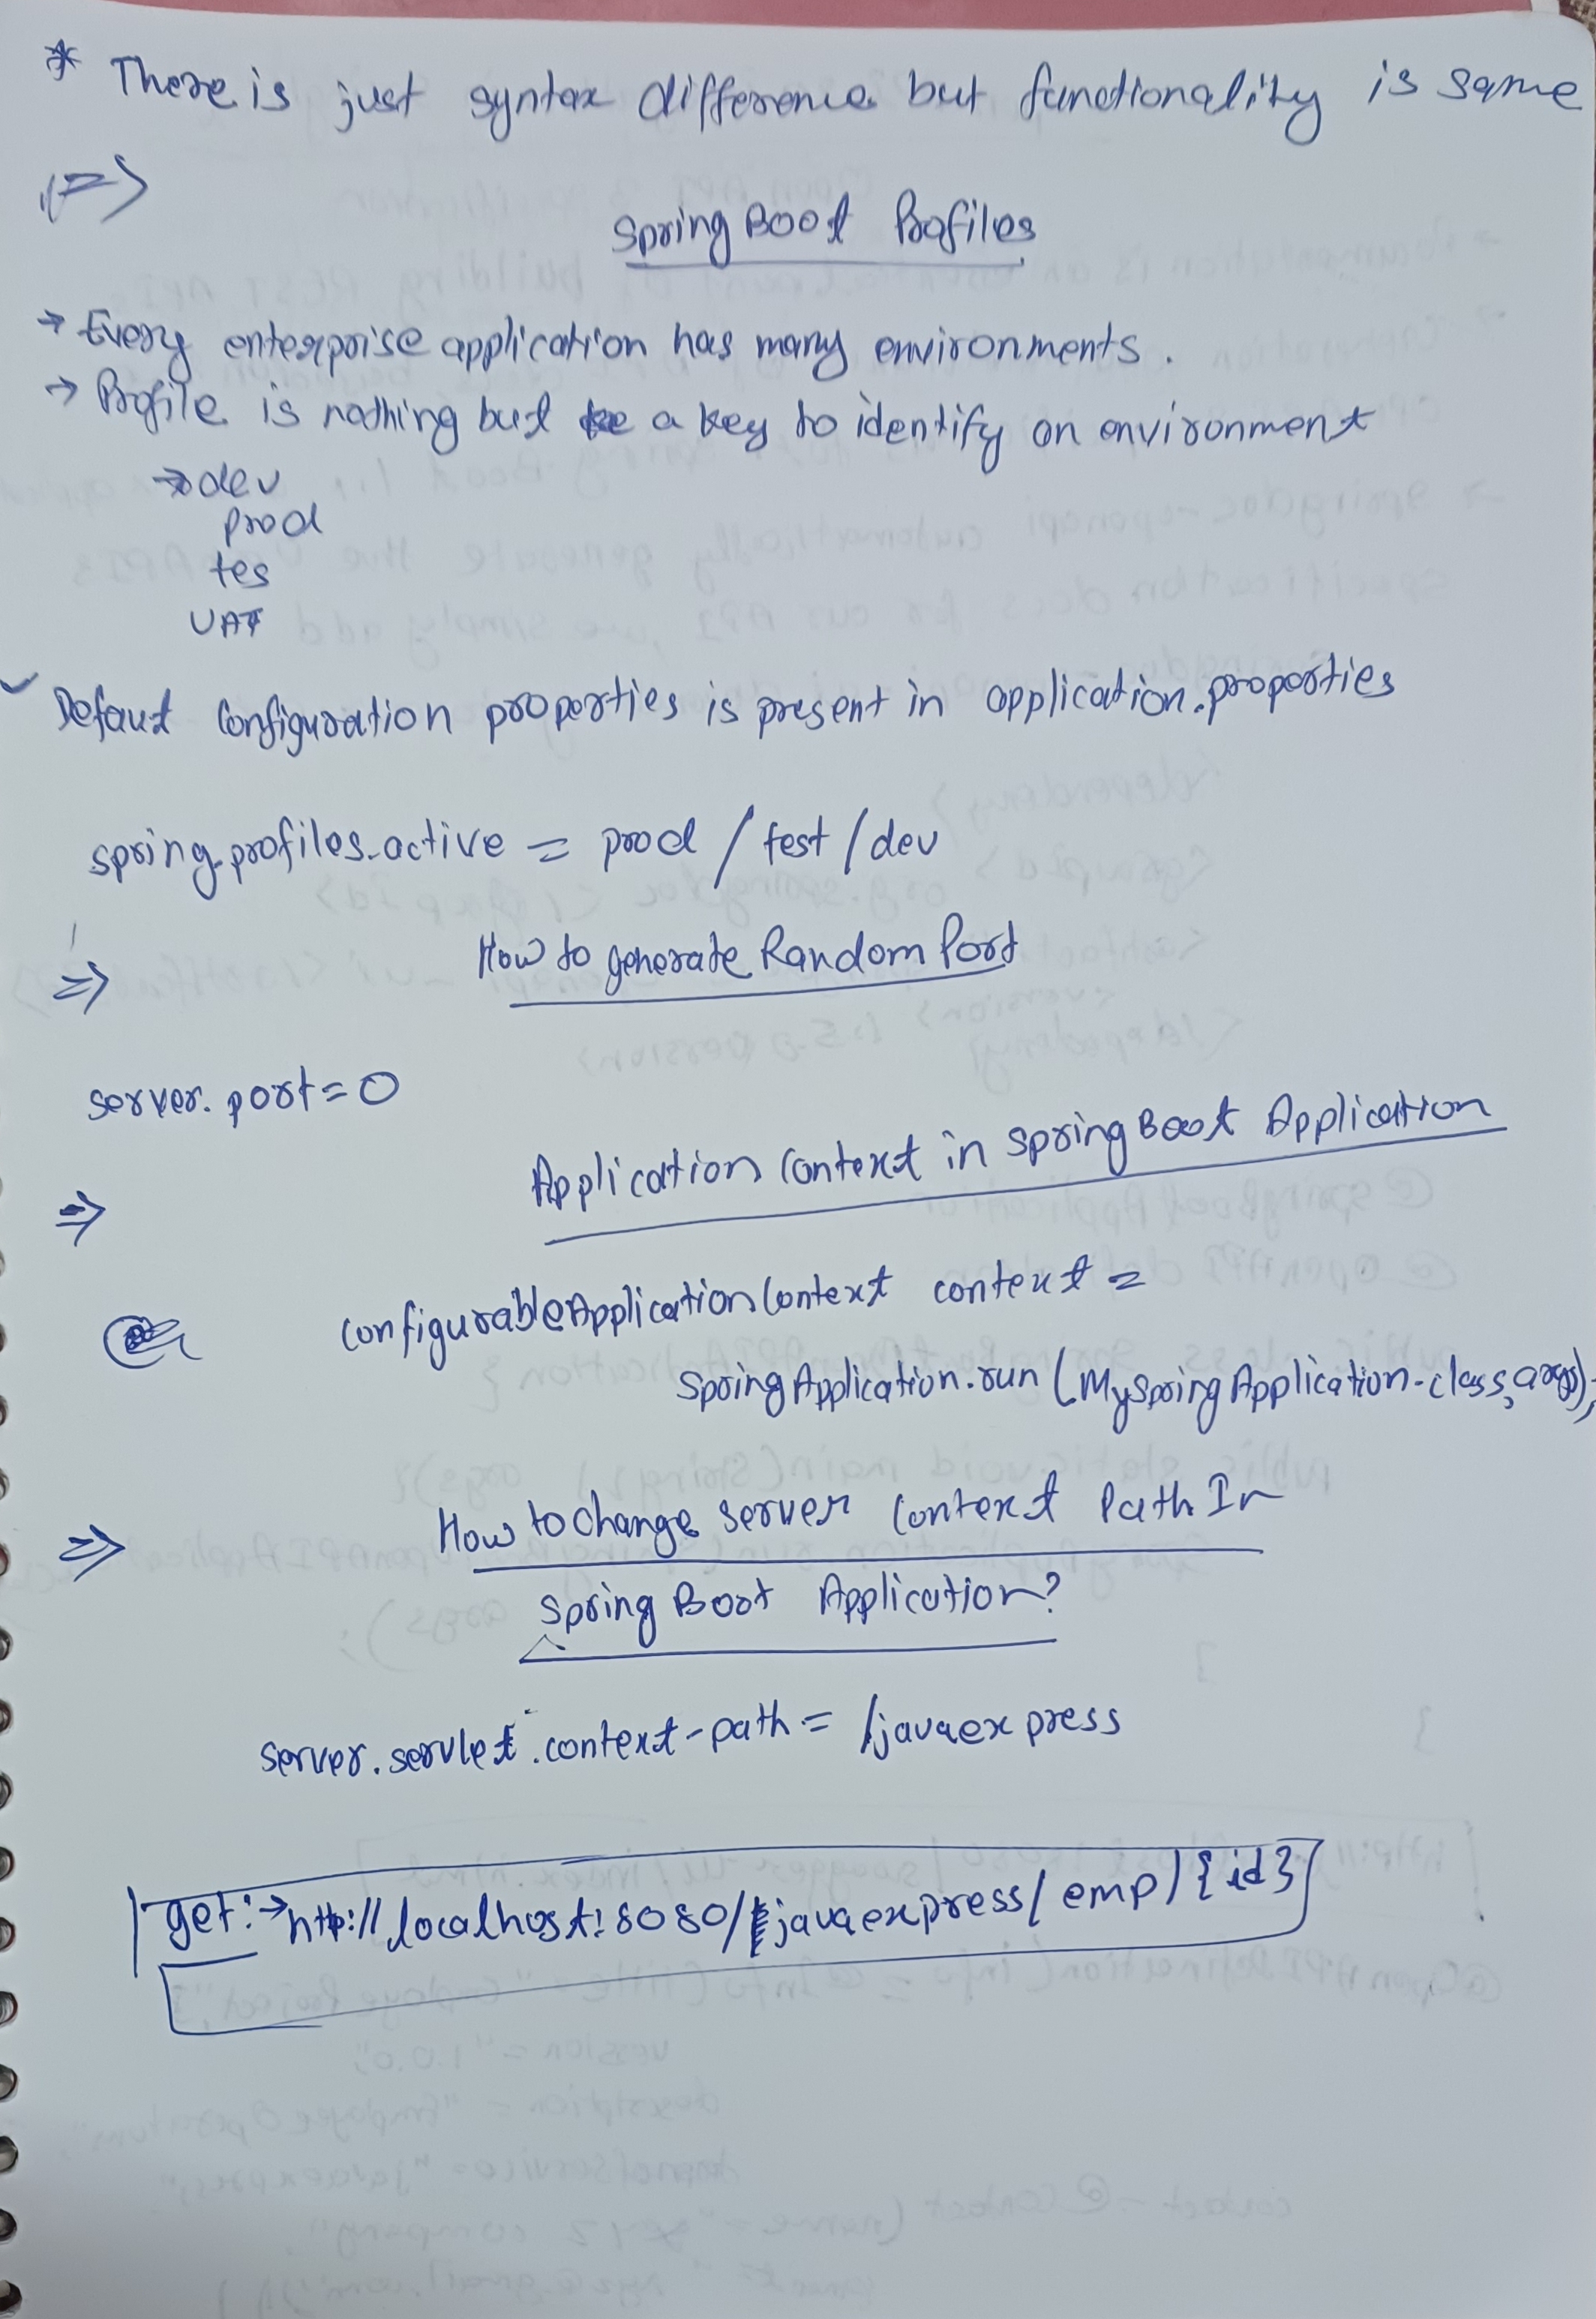 * There is just syntax difference but functionality is same
=>
Spring Boot Profiles
→ Every enterprise application has many environments.
→ Profile is nothing but a key to identify an environment
→ dev
prod
tes
UAT
✓ Defaut Configuration properties is present in application.properties
spring.profiles.active = prod / test / dev
=> How to generate Random Port
server.port=0
Application Context in Spring Boot Application
=>
ConfigurableApplicationContext context =
SpringApplication.run (MySpringApplication.class, args);
=> How to change server Context Path In
Spring Boot Application?
server.servlet.context-path = /javaexpress
get:→ http://localhost:8080/javaexpress/emp/{id}